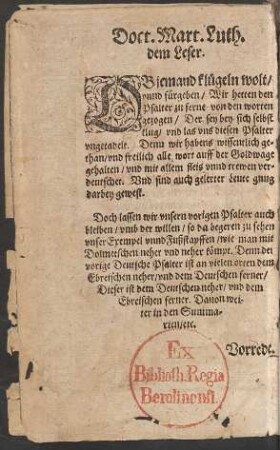 Doct. Mart. Luth.
dem Leser.
OB jemand klügeln wolt/
vnnd fürgeben/ Wir hetten den
Psalter zu ferne von den worten
gezogen/ Der sey bey sich selbst
klug/ vnd las vns diesen Psalter
vngetadelt. Denn wir habens wissentlich ge-
than/ vnd freilich alle wort auff der Goldwage
gehalten/ vnd mit allem fleis vnnd trewen ver-
deutschet. Vnd sind auch gelerter Leute gnug
darbey gewest.
Doch lassen wir vnsern vorigen Psalter auch
bleiben/ vmb der willen/ so da begeren zu sehen
vnser Exempel vnnd Fusstapffen/ wie man mit
Dolmetschen neher vnd neher kömpt. Denn der
vorige Deutsche Psalter ist an vielen orten dem
Ebreischen neher/ vnd dem Deutschen ferner/
Dieser ist dem Deutschen neher/ vnd dem
Ebreischen ferner. Dauon wei-
ter in den Summa-
rien/etc.
Vorrede.
Ex
Biblioth. Regia
Berolinensi.